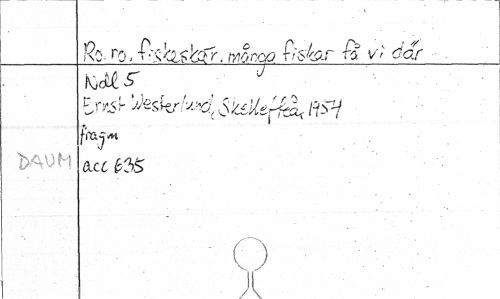 Ro. ro. fiskeskär. många fiskar få vi där
Ndl 5
Ernst Westerlund, Skellefteå, 1954
fragm
DAUM acc 635